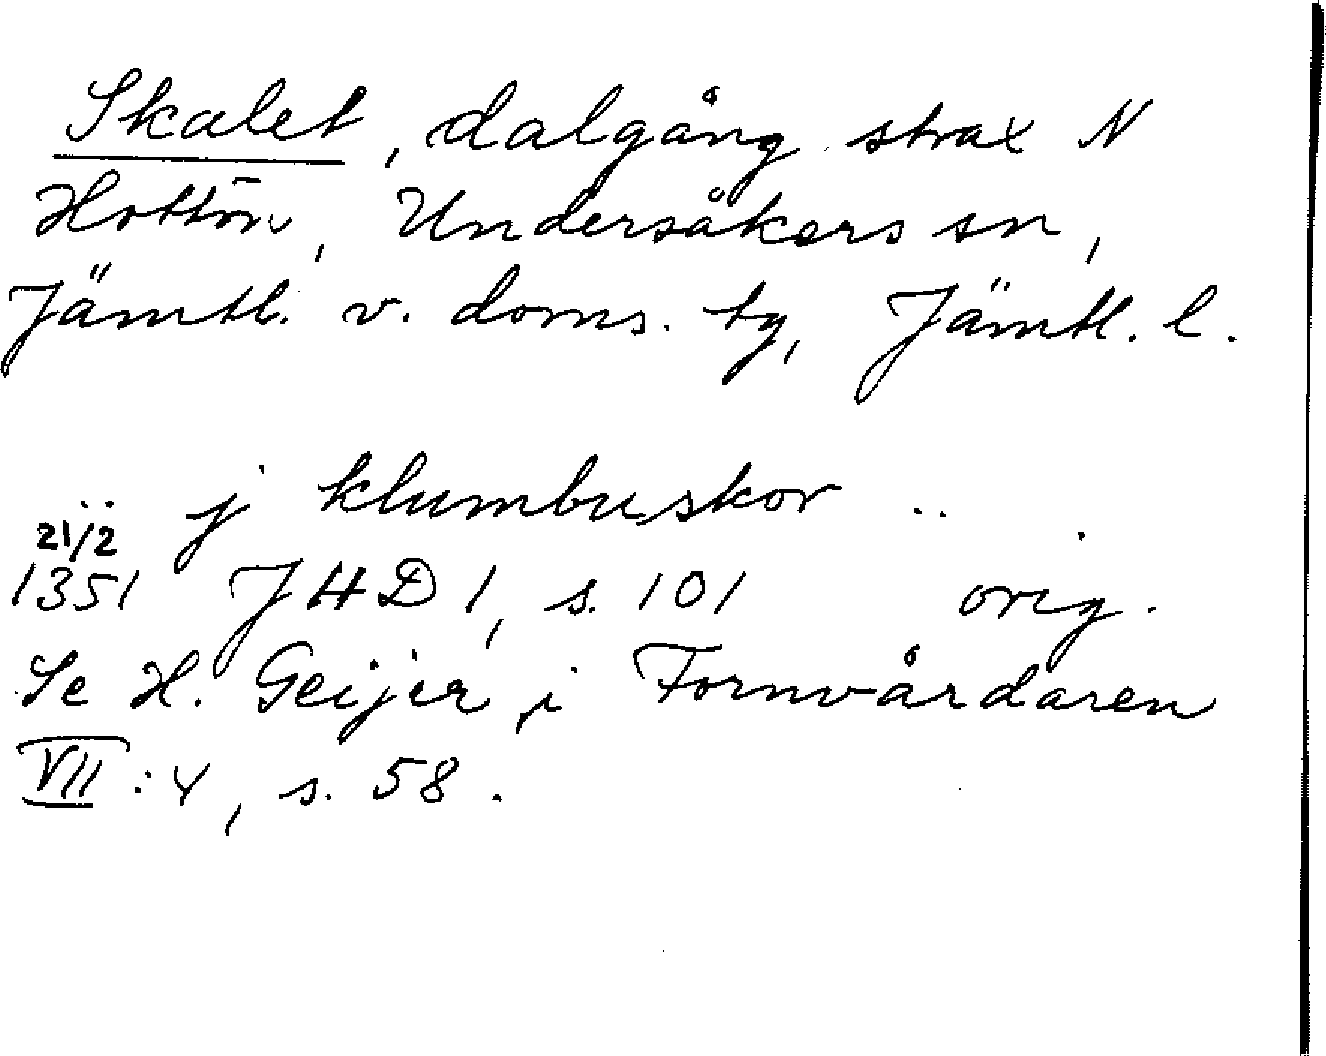 Skalet, dalgång strax N
Hottön, Undersåkers sn,
Jämtl. v. doms. tg, Jämtl. l.
.. j klumbuskor ..
21/2
1351 JHD 1, s. 101 orig.
Se H. Geijer, i Fornvårdaren
VII:4, s. 58.